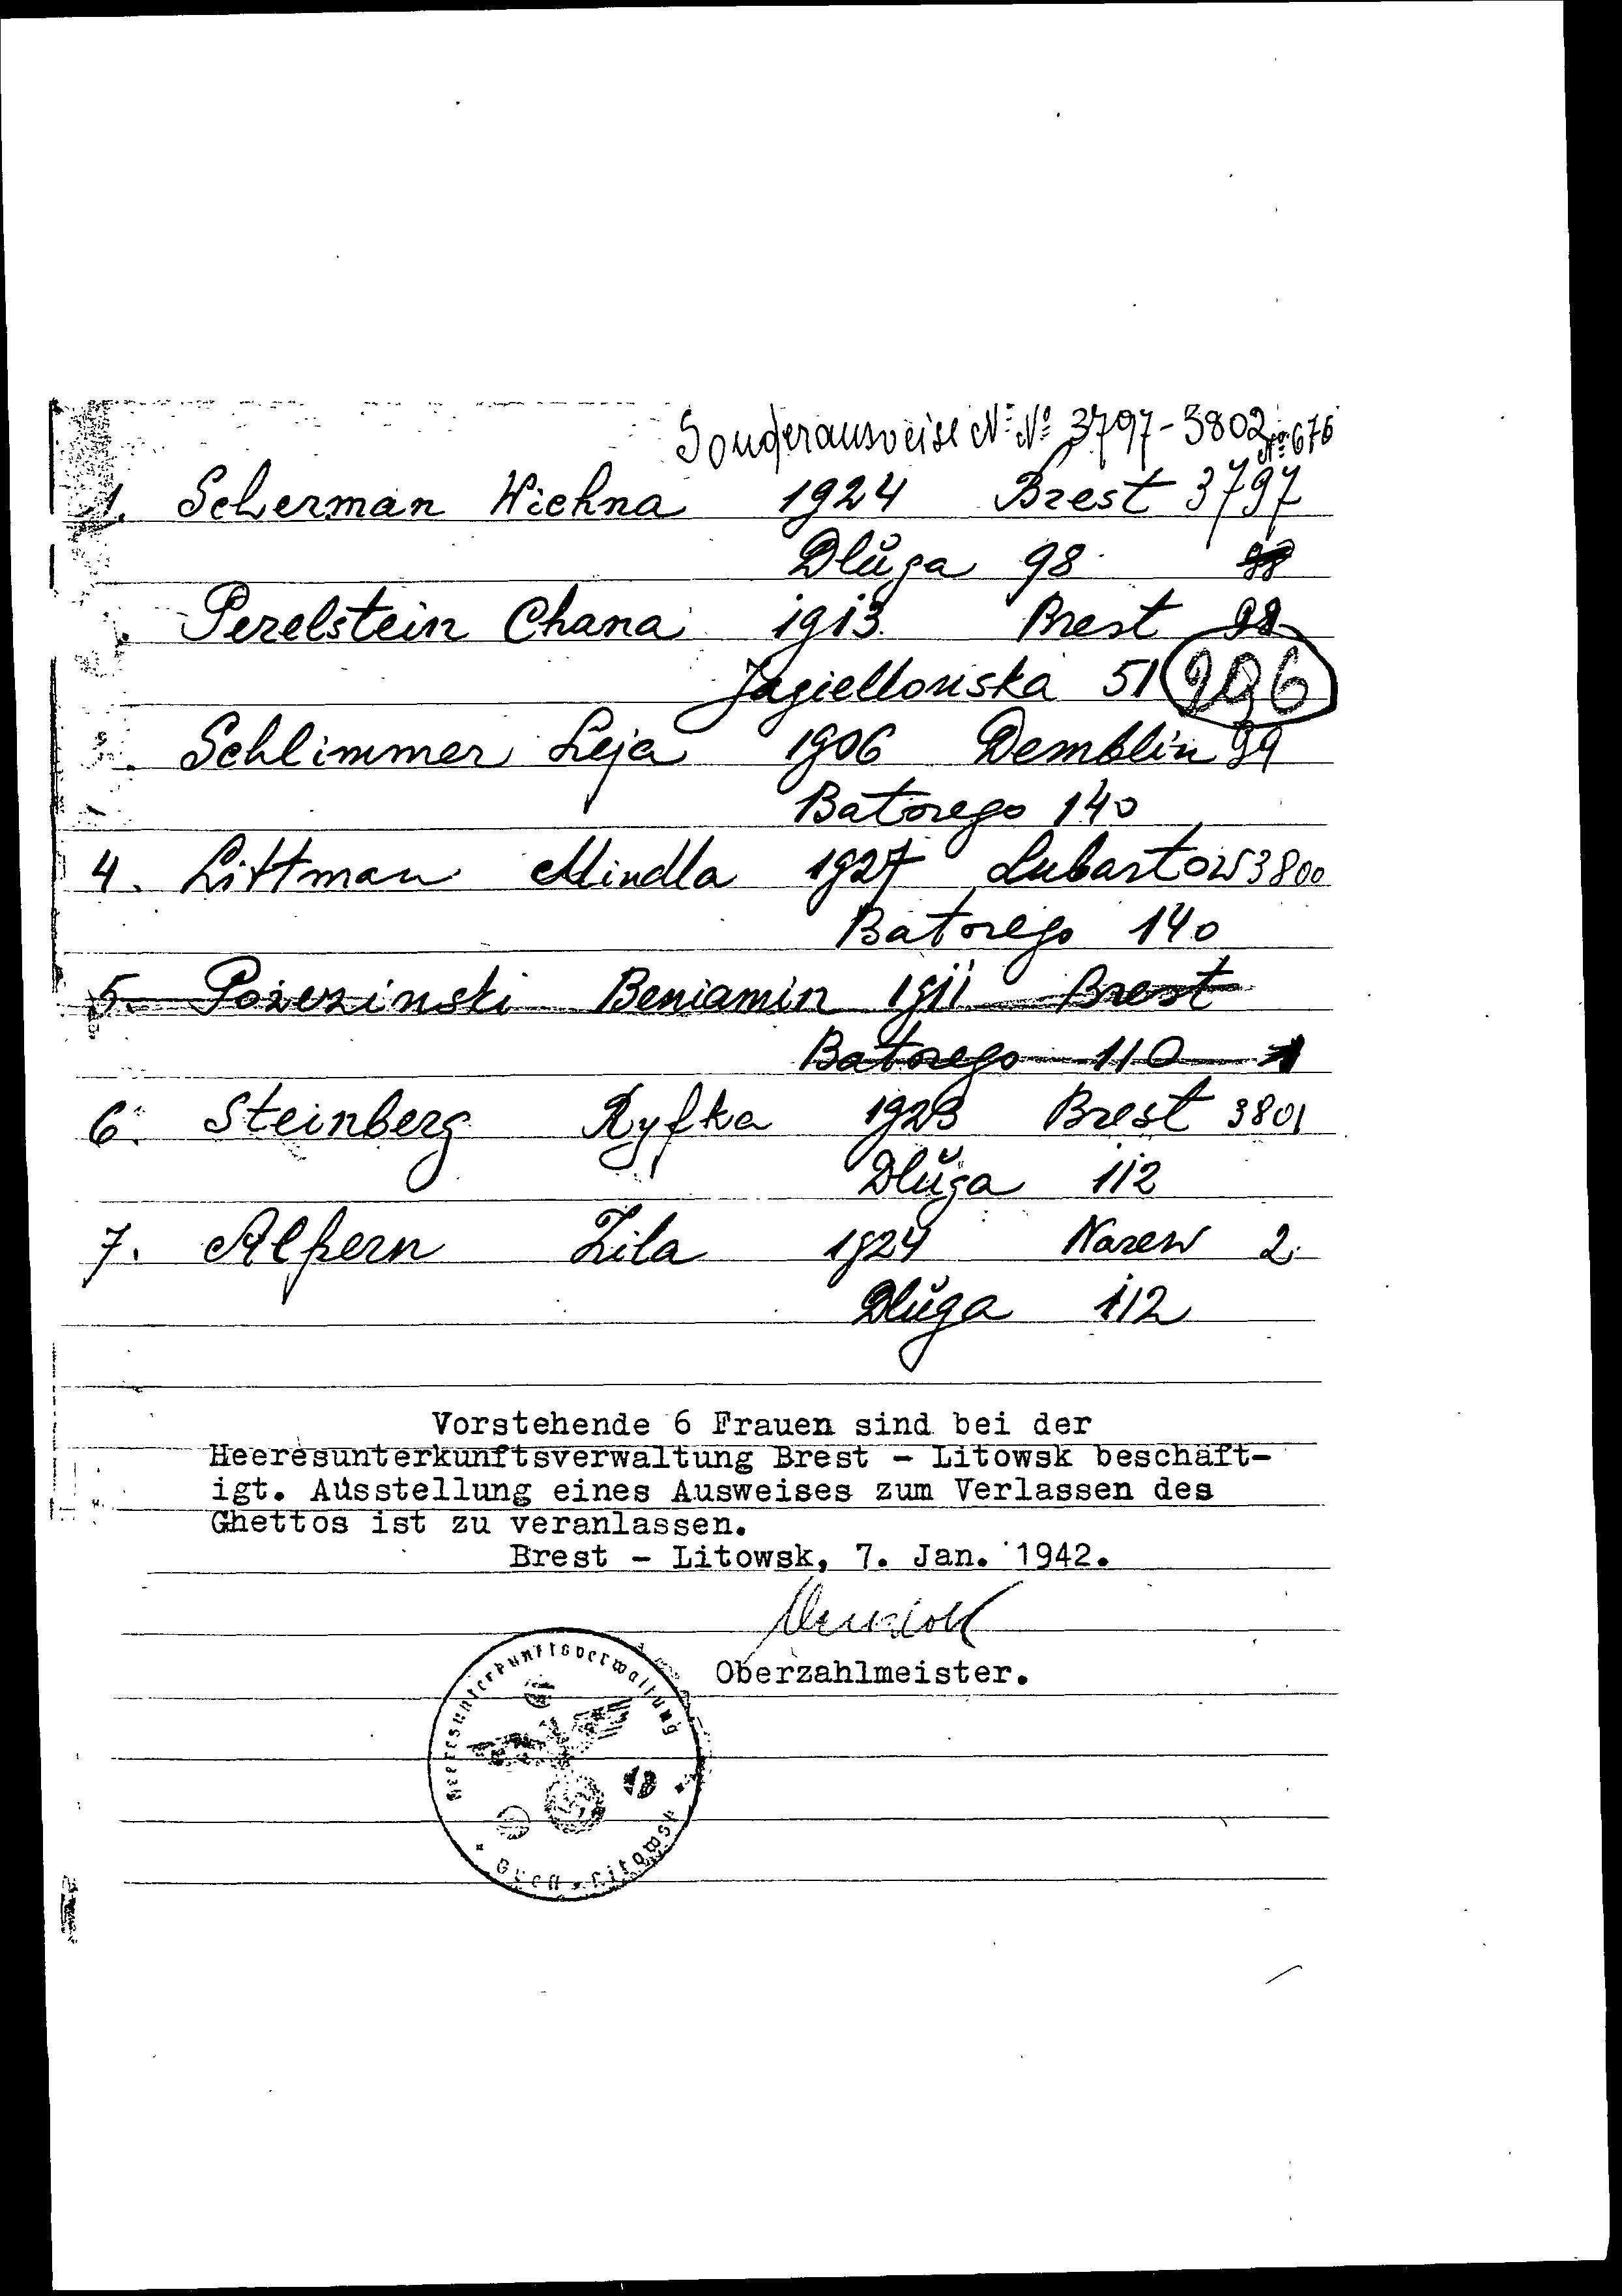 Sonderausweise №№ 3797-3802 № 676
1. Scherman Wichna 1924 Brest 3797
Dlŭga 98
Perelstein Chana 1913 Brest 98
Jagiellonska 51 296
3. Schlimmer Leja 1906 Demblin 99
Batorego 140
4. Littman Mindla 1927 Lubartow 3800
Batorego 140
5. Pozezinski Beniamin 1911 Brest
Batorego 110
6. Steinberg Ryfka 1923 Brest 3801
Dlŭga 112
7. Alpern Zila 1924 Narew 2.
Dlŭga 112
Vorstehende 6 Frauen sind bei der
Heeresunterkunftsverwaltung Brest - Litowsk beschäft-
igt. Ausstellung eines Ausweises zum Verlassen des
Ghettos ist zu veranlassen.
Brest - Litowsk, 7. Jan. 1942.
Oberzahlmeister.
Heeresunterkunftsverwaltung
Brest-Litowsk